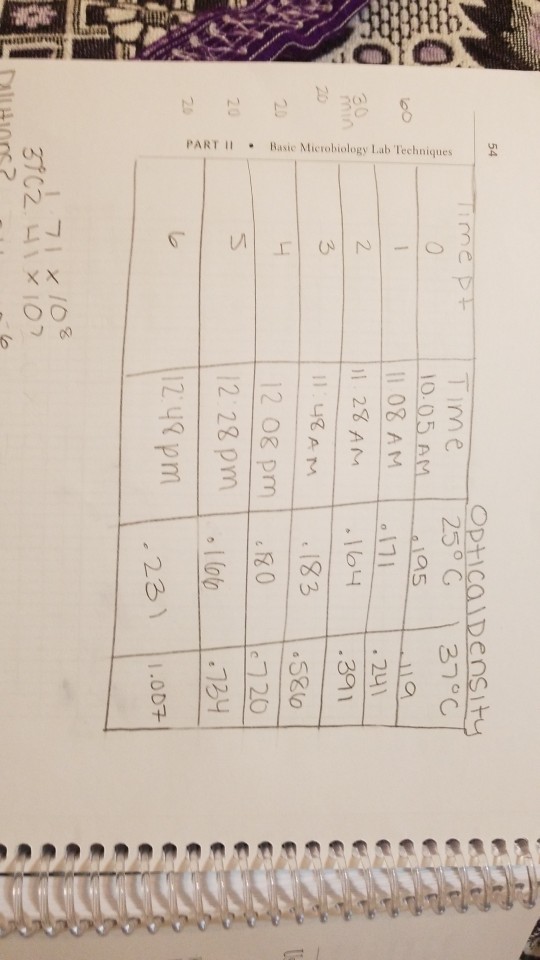 54
PART II • Basic Microbiology Lab Techniques
Optical Density
Time pt Time 25°C 37°C
0 10:05 AM .195 .119
60 1 11 08 AM .171 .241
30 min 2 11:28 AM .164 .391
20 3 11:48 AM .183 .586
20 4 12 08 pm .180 .720
20 5 12:28 pm .166 .734
20 6 12:48 pm .231 1.007
1.71 x 10⁸
37°C 2.41 x 10⁷
Dilutions?